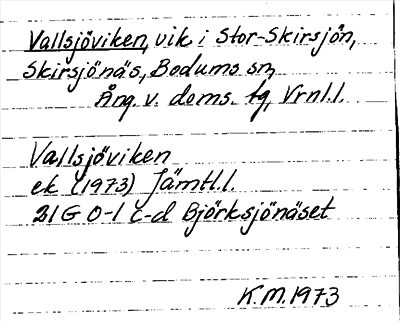 Vallsjöviken, vik i Stor-Skirsjön,
Skirsjönäs, Bodums sn,
Ång. v. doms. tg, Vrnl.l.
Vallsjöviken
ek (1973) Jämtl.l.
21G 0-1 c-d Björksjönäset
K.M.1973